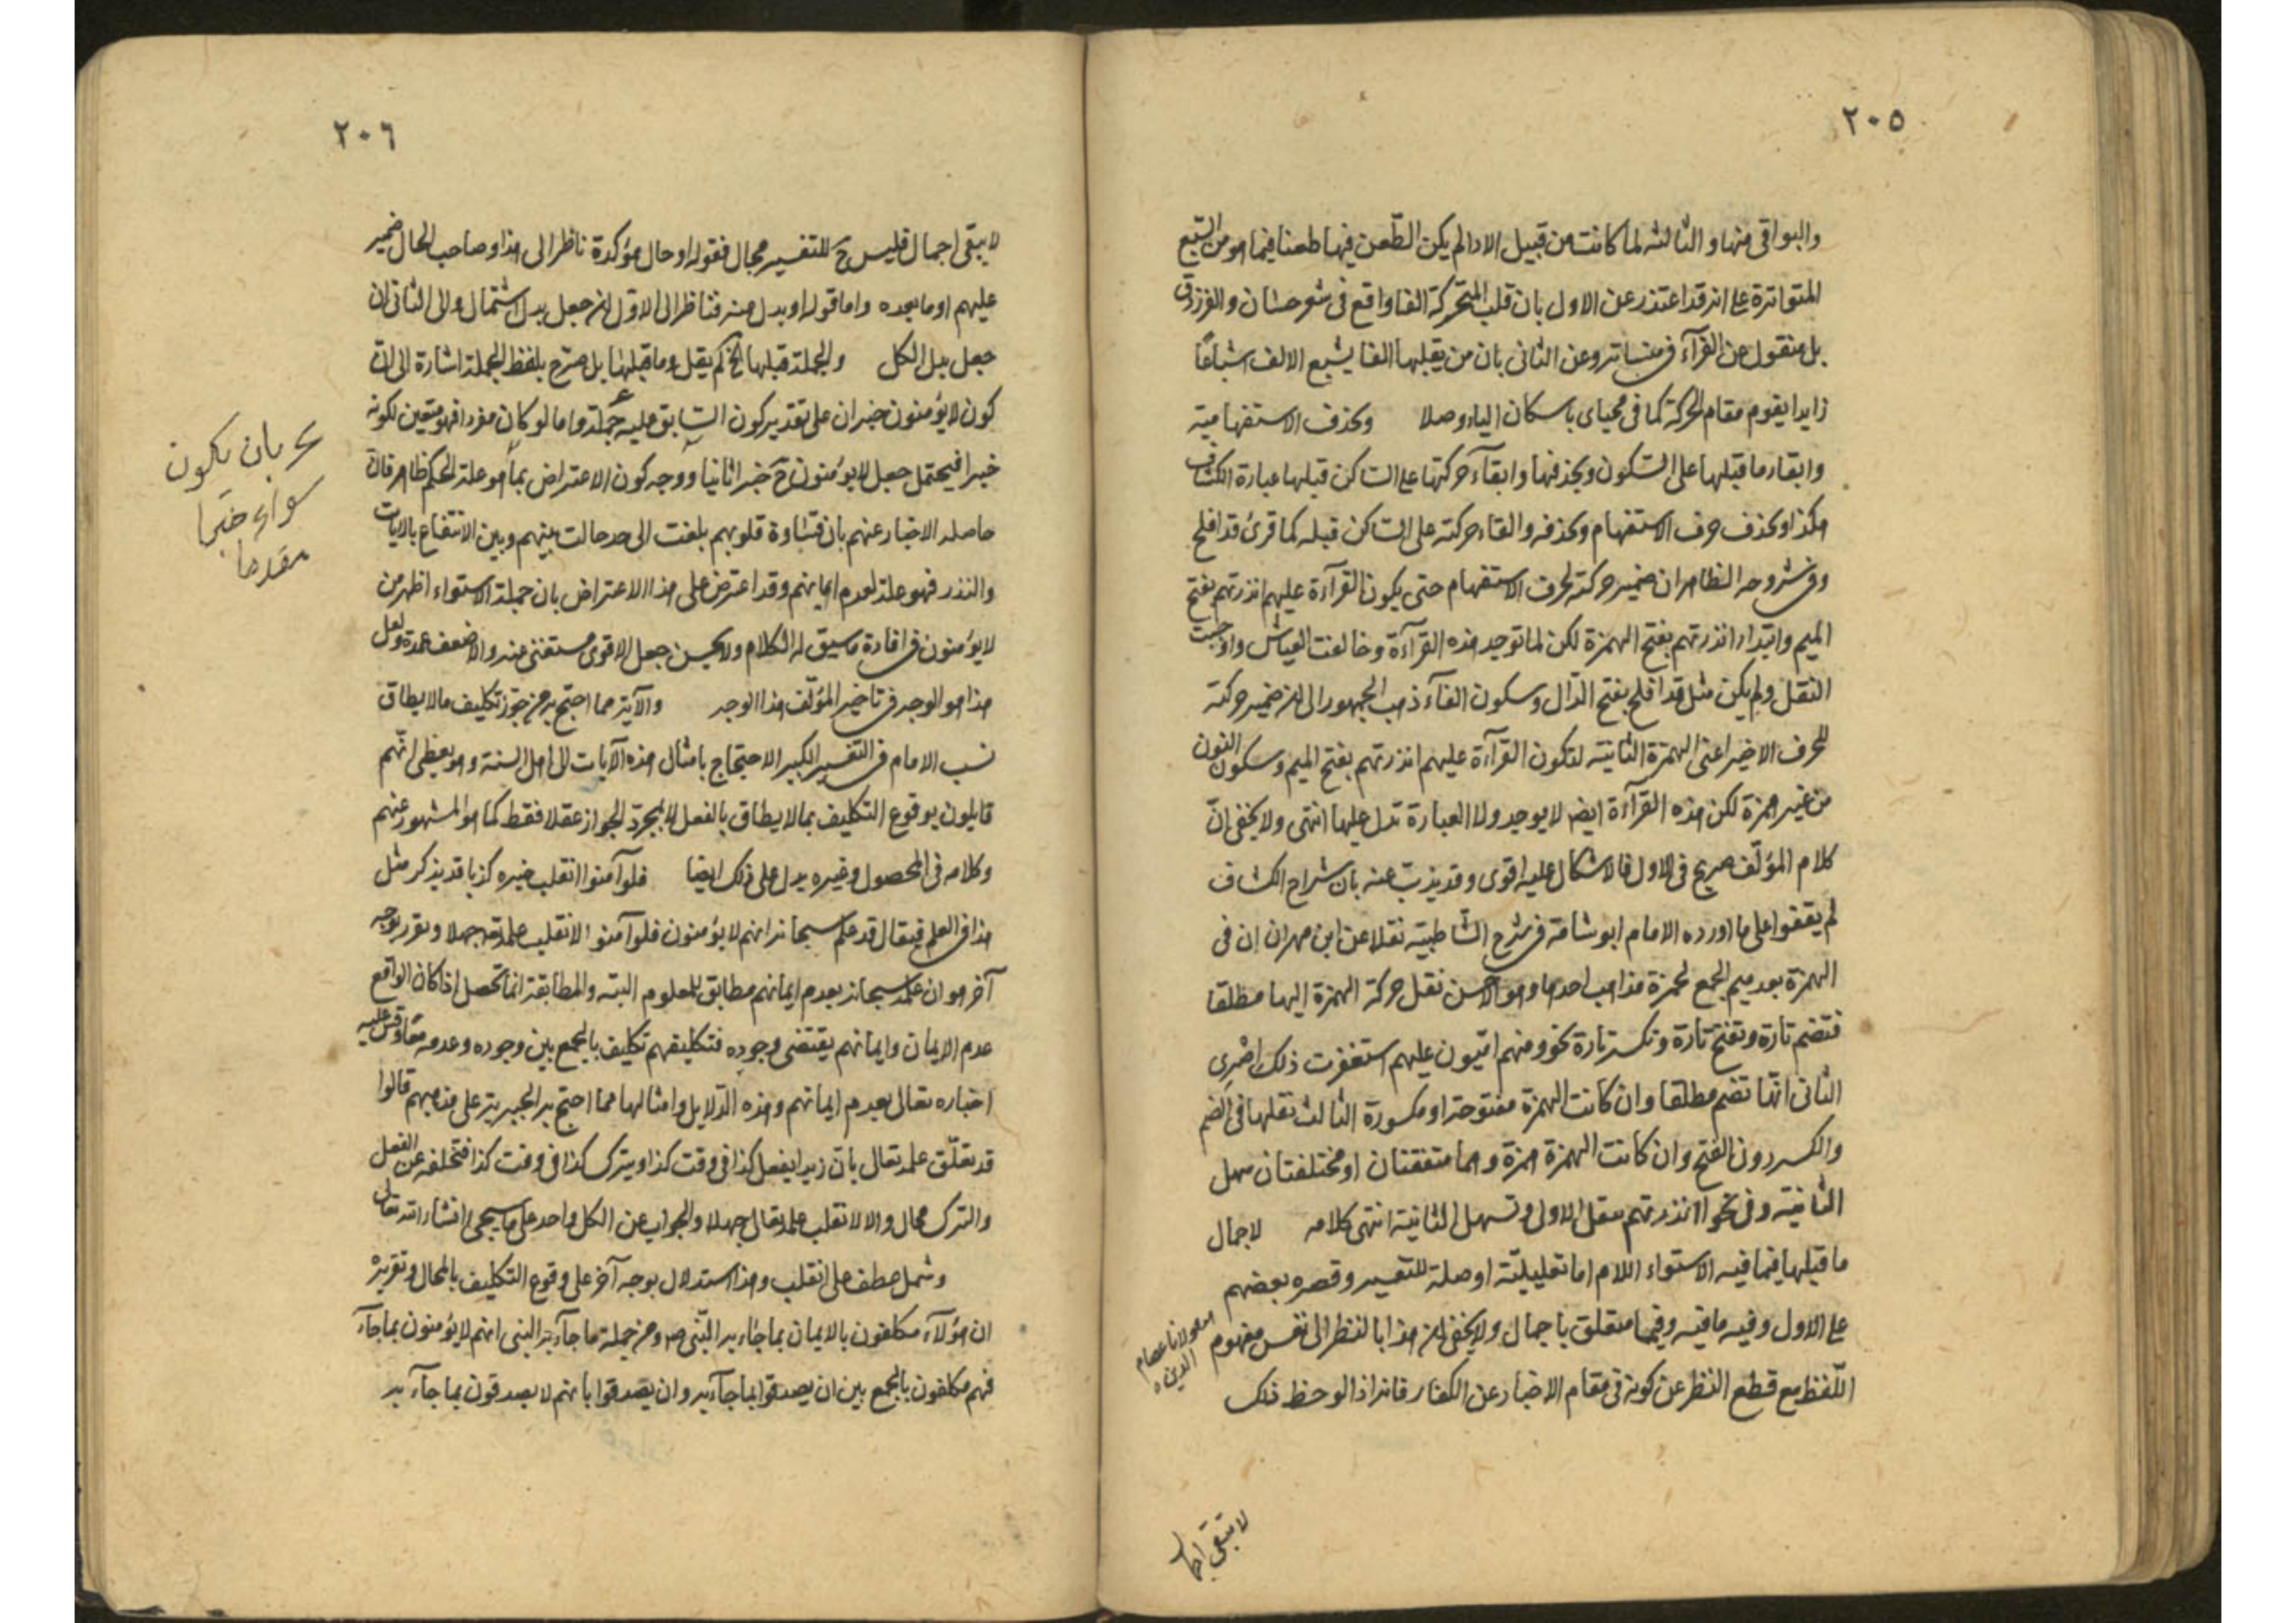 ٢٠٥
والبواقى منها والثالثه لما كانت من قبيل الاداء لم يكن الطّعن فيها طعنا فيما هو من السّبع
المتواترة على انه قد اعتذر عن الاول بان قلب المتحركة الفا واقع فى شعر حسّان والفرزدق
بل منقول عن القرآء فى منساته وعن الثانى بان من يقلبها الفا يشبع الالف اشباعًا
زايدا يقوم مقام الحركة كما فى محياى باسكان الياء وصلا وبحذف الاستفهامية
وابقاء ما قبلها على السّكون وبحذفها وابقآء حركتها على السّاكن قبلها عبارة الكشّاف
هكذا وبحذف حرف الاستفهام وبحذفه والقاء حركته على السّاكن قبله كما قرئ قد افلح
وفى شروحه الظاهر ان ضمير حركته لحرف الاستفهام حتى يكون القرآءة عليهم انذرتهم بفتح
الميم وابتداء انذرتهم بفتح الهمزة لكن لما توجد هذه القرآءة وخالفت القياس واوجبت
النقل ولم يكن مثل قد افلح بفتح الدّال وسكون الفآء ذهب الجمهور الى انه ضمير حركته
للحرف الاخير اعنى الهمزة الثانية لتكون القرآءة عليهم انذرتهم بفتح الميم وسكون النون
من غير همزة لكن هذه القرآءة ايضا لا يوجد ولا العبارة تدل عليها انتهى ولا يخفى انّ
كلام المؤلّف صريح فى الاول فالاشكال عليه اقوى وقد يذبّ عنه بان شراح الكشاف
لم يقفوا على ما اورده الامام ابو شامة فى شرح الشّاطبية نقلا عن ابن مهران ان فى
الهمزة بعد ميم الجمع لحمزة مذاهب احدها وهو الاحسن نقل حركة الهمزة اليها مطلقا
فتضم تارة وتفتح تارة وتكسر تارة نحو ومنهم اميون عليهم استغفرت ذلك اصرى
الثانى انّها تضم مطلقا وان كانت الهمزة مفتوحة او مكسورة الثالث نقلها فى الضم
والكسر دون الفتح وان كانت الهمزة همزة وهما متفقتان او مختلفتان سهل
الثانية وفى نحو اانذرتهم ينقل الاولى وتسهل الثانية انتهى كلامه لاجمال
ما قبلها فيما فيه الاستواء اللام اما تعليليّة او صلة للتفسير وقصره بعضهم
على الاول وفيه ما فيه وفيما متعلق باجمال ولا يخفى انه هذا بالنظر الى نفس مفهوم
اللّفظ مع قطع النظر عن كونه فى مقام الاخبار عن الكفار فانه اذا لوحظ ذلك
مولانا عصام
الدين
لا يبقى اجمال
٢٠٦
لا يبقى اجمال فليس ح للتفسير مجال فقوله او حال مؤكدة ناظر الى هذا وصاحب الحال ضمير
عليهم او ما بعده واما قوله او بدل منه فناظر الى الاول انه جعل بدل اشتمال والى الثانى ان
جعل بدل الكل والجملة قبلها الخ لم يقل وما قبلها بل صرّح بلفظ الجملة اشارة الى انّ
كون لا يؤمنون خبر ان على تقدير كون السّابق عليه جملة واما لو كان مفردا فهو متعين لكونه
خبرا فيحتمل جعل لا يؤمنون ح خبرا ثانيا ووجه كون الاعتراض بما هو علة الحكم ظاهر فانّ
حاصله الاخبار عنهم بان قساوة قلوبهم بلغت الى حد حالت بينهم وبين الانتفاع بالايات
والنذر فهو علة لعدم ايمانهم وقد اعترض على هذا الاعتراض بان جملة الاستواء اظهر من
لا يؤمنون فى افادة ما سيق له الكلام ولا يحسن جعل الاقوى مستغنى عنه والاضعف عمدة ولعل
هذا هو الوجه فى تاخير المؤلّف هذا الوجه والآية مما احتج به من جوّز تكليف ما لا يطاق
نسب الامام فى التفسير الكبير الاحتجاج بامثال هذه الآيات الى اهل السنة وهو يعطى انّهم
قايلون بوقوع التكليف بما لا يطاق بالفعل لا بمجرّد الجواز عقلا فقط كما هو المشهور عنهم
وكلامه فى المحصول وغيره يدل على ذلك ايضا فلو آمنوا انقلب خبره كذبا قد يذكر مثل
هذا فى العلم فيقال قد علم سبحانه انهم لا يؤمنون فلو آمنوا لانقلب علمه جهلا ويقرر بوجه
آخر هو ان علمه سبحانه بعدم ايمانهم مطابق للمعلوم البته والمطابقة انما تحصل اذا كان الواقع
عدم الايمان وايمانهم يقتضى وجوده فتكليفهم تكليف بالجمع بين وجوده وعدمه معًا وقس عليه
اخباره تعالى بعدم ايمانهم وهذه الدّلايل وامثالها مما احتج به الجبرية على مذهبهم قالوا
قد تعلّق علمه تعالى بانّ زيدا يفعل كذا فى وقت كذا ويترك كذا فى وقت كذا فتخلفه عن الفعل
والترك محال والا لانقلب علمه تعالى جهلا والجواب عن الكل واحد على ما سيجئ انشاء الله تعالى
وشمل عطف على انقلب وهذا استدلال بوجه آخر على وقوع التكليف بالمحال وتقريره
ان هؤلآء مكلفون بالايمان بما جاء به النّبى ص ومن جملة ما جآء به النبى انهم لا يؤمنون بما جآء
فهم مكلفون بالجمع بين ان يصدقوا بما جآء به وان يصدقوا بانهم لا يصدقون بما جآء به
بان يكون
سواء خبرا
مقدما